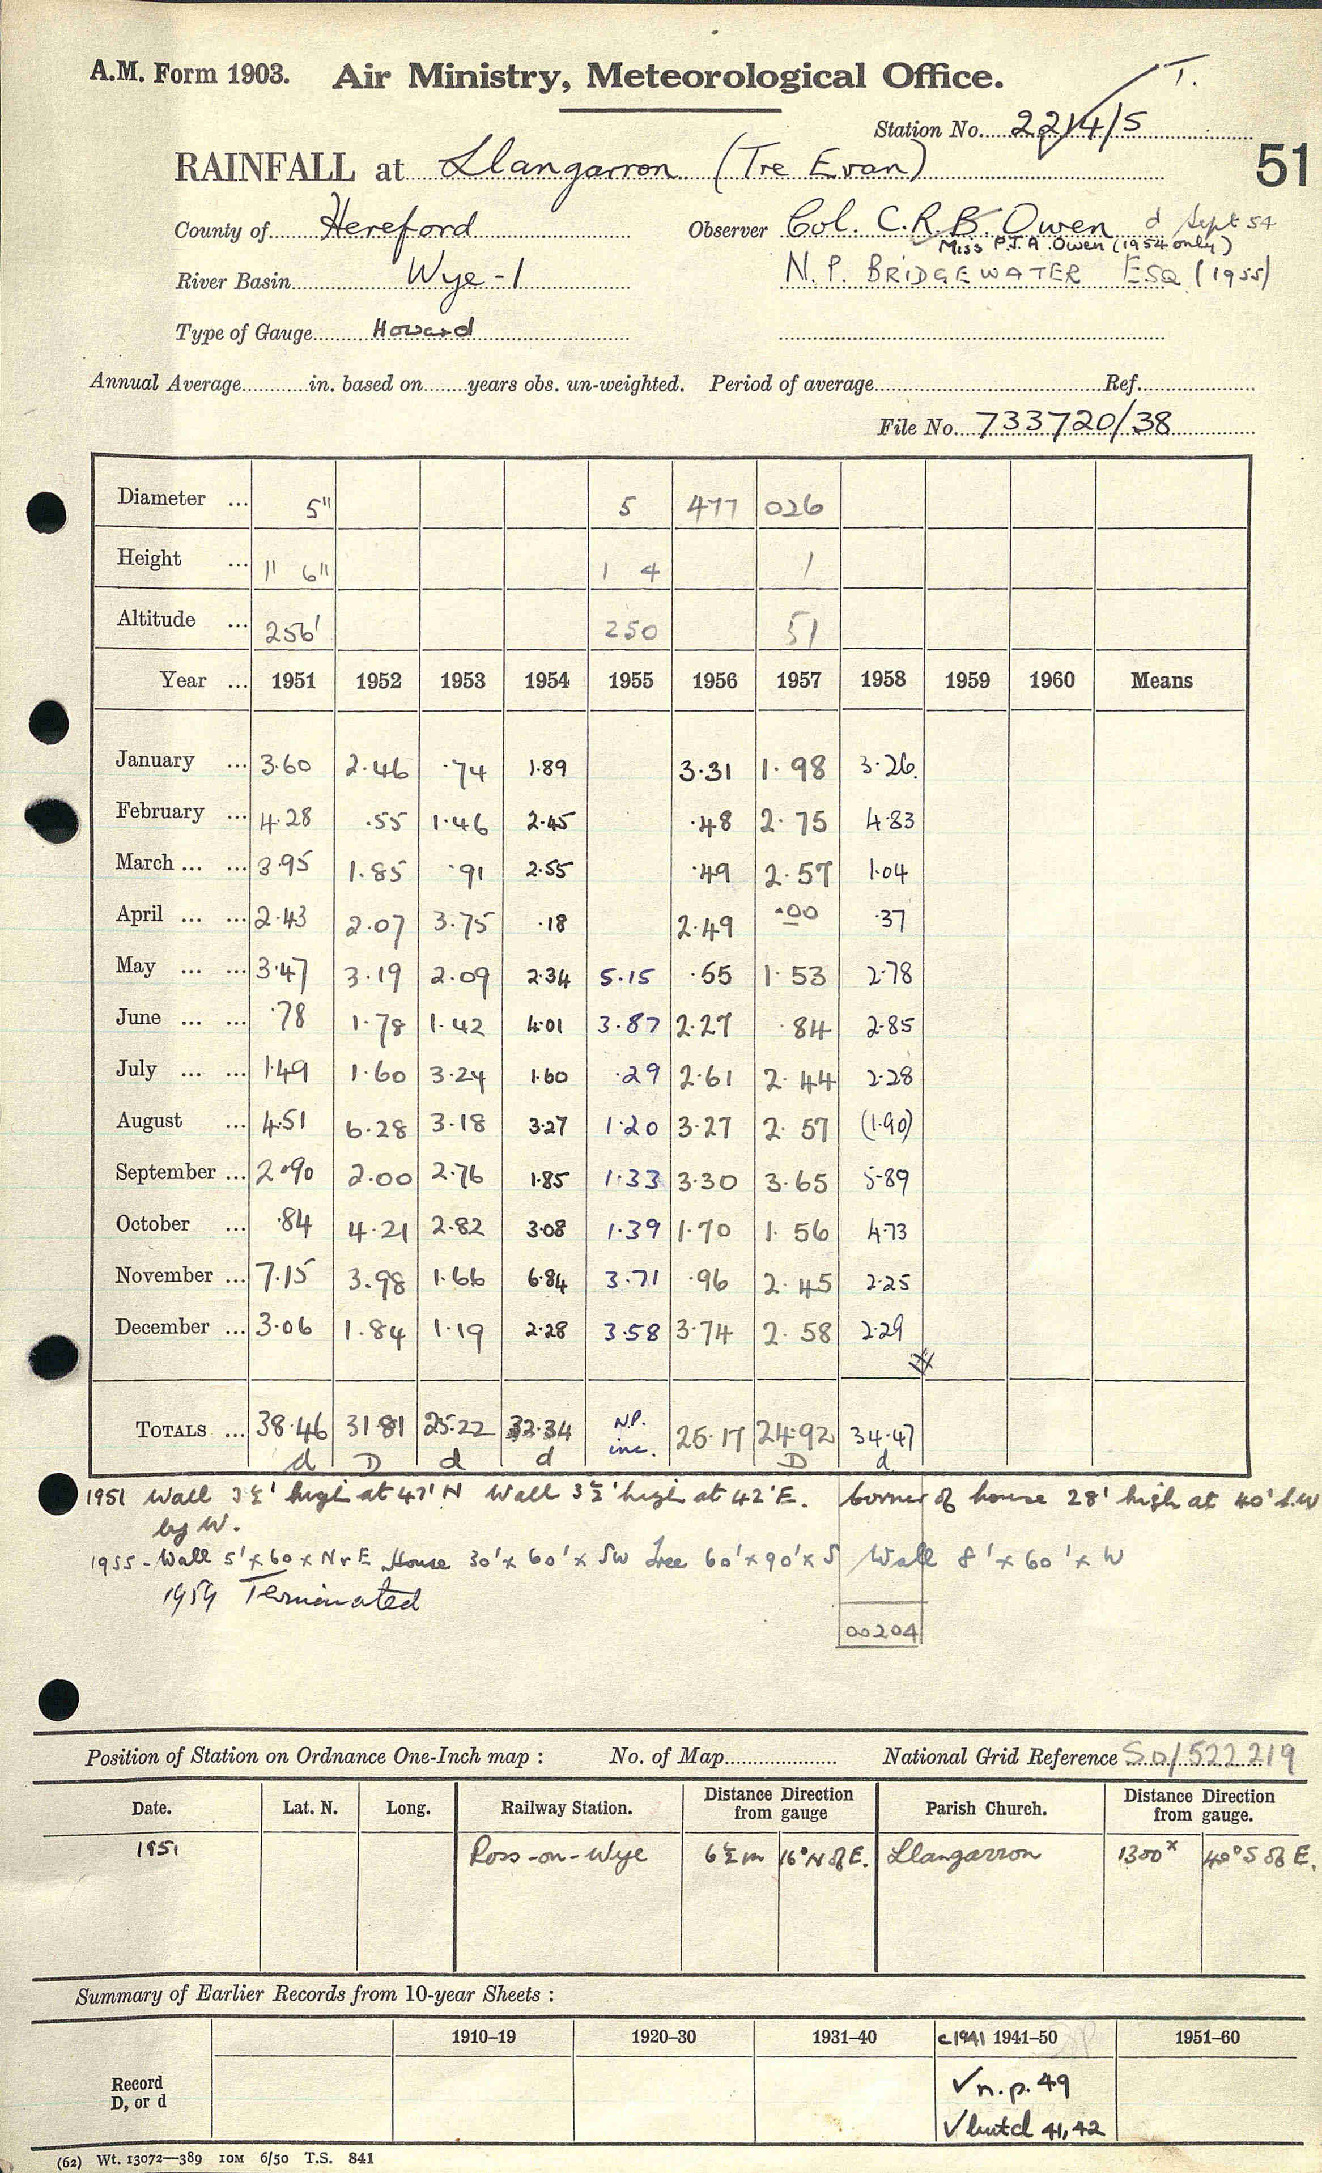 A.M. Form 1903. Air Ministry, Meteorological Office. T.
Station No. 2214/5
51
RAINFALL at Llangarron (Tre Evan)
County of Hereford Observer Col. C.R.B. Owen d Sept 54
Miss P.J.A. Owen (1954 only)
River Basin Wye-1 N. P. BRIDGEWATER ESQ (1955)
Type of Gauge Howard
Annual Average in. based on years obs. un-weighted. Period of average Ref.
File No. 733720/38
Diameter ... 5" 5 477 026
Height ... 1' 6" 1 4 1
Altitude ... 256' 250 51
Year ... 1951 1952 1953 1954 1955 1956 1957 1958 1959 1960 Means
January ... 3.60 2.46 .74 1.89 3.31 1.98 3.26
February ... 4.28 .55 1.46 2.45 .48 2.75 4.83
March ... ... 3.95 1.85 .91 2.55 .49 2.57 1.04
April ... ... 2.43 2.07 3.75 .18 2.49 .00 .37
May ... ... 3.47 3.19 2.09 2.34 5.15 .55 1.53 2.78
June ... ... .78 1.78 1.42 4.01 3.87 2.27 .84 2.85
July ... ... 1.49 1.60 3.24 1.60 .29 2.61 2.44 2.28
August ... 4.51 6.28 3.18 3.27 1.20 3.27 2.57 (1.90)
September ... 2.90 2.00 2.76 1.85 1.33 3.30 3.65 5.89
October ... .84 4.21 2.82 3.08 1.39 1.70 1.56 4.73
November ... 7.15 3.98 1.66 6.84 3.71 .96 2.45 2.25
December ... 3.06 1.84 1.19 2.28 3.58 3.74 2.58 2.29
TOTALS ... 38.46 31.81 25.22 32.34 N.P. inc. 25.17 24.92 34.47
d D d d D d
1951 Wall 3½' high at 47' N Wall 3½' high at 42' E. Corner of house 28' high at 40' S.W
by W.
1955 - Wall 5' x 60 x N & E House 30' x 60' x SW Tree 60' x 90' x S Wall 8' x 60' x W
1959 Terminated
00204
Position of Station on Ordnance One-Inch map : No. of Map National Grid Reference SO/522219
Date. Lat. N. Long. Railway Station. Distance Direction from gauge Parish Church. Distance Direction from gauge.
1951 Ross-on-Wye 6½m 16° N of E. Llangarron 1300x 40° S of E.
Summary of Earlier Records from 10-year Sheets :
1910–19 1920–30 1931–40 c1941 1941–50 1951–60
Record
D, or d
✓ n.p. 49
✓ but d 41, 42
(62) Wt. 13072—389 10M 6/50 T.S. 841